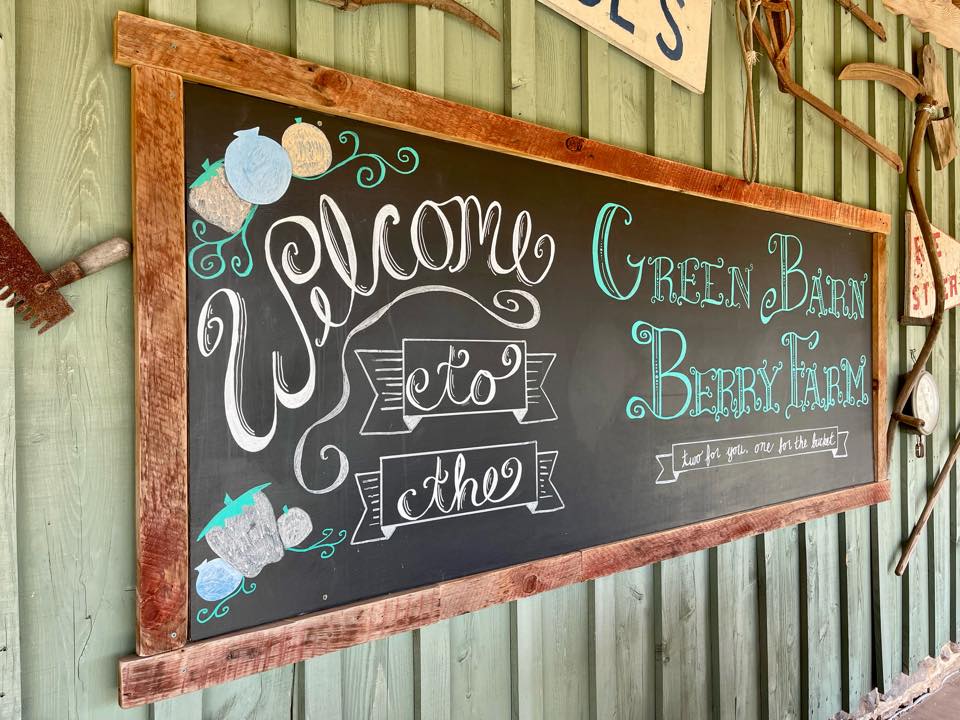 Welcome
to
the
Green Barn
Berry Farm
two for you, one for the bucket